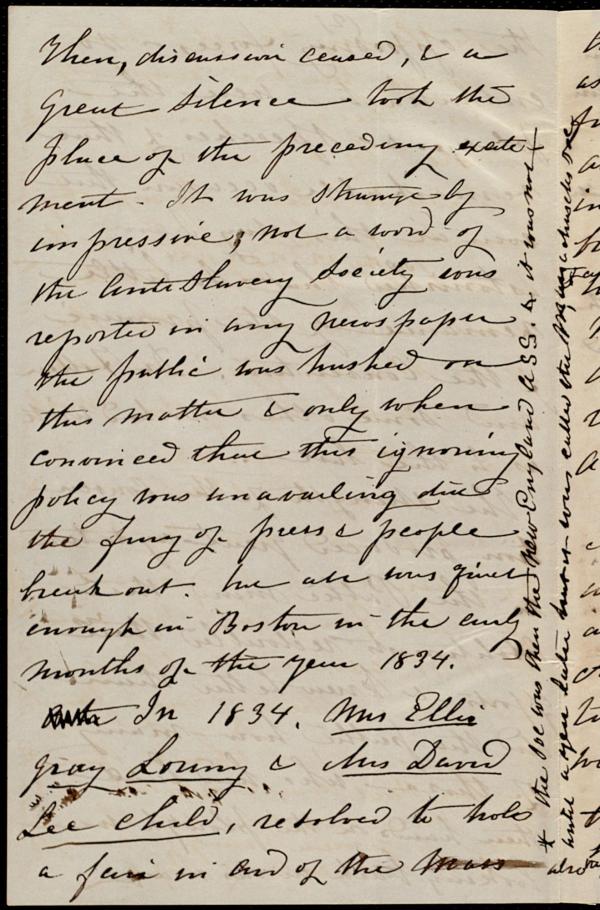 Then, discussion ceased, & a
great silence took the
place of the preceding excite-
ment. It was strangely
impressive; not a word of
the Anti Slavery Society was
reported in any newspaper
the public was hushed on
this matter & only when
convinced that this ignoring
policy was unavailing did
the fury of press & people
break out. but all was quiet
enough in Boston in the early
months of the year 1834.
In 1834. Mrs Ellis
gray Loring & Mrs David
Lee Child, resolved to hold
a fair in aid of the Mass
* the Soc was then the New England A SS. & it was not
until a year later that it was called the Massachusetts Soc